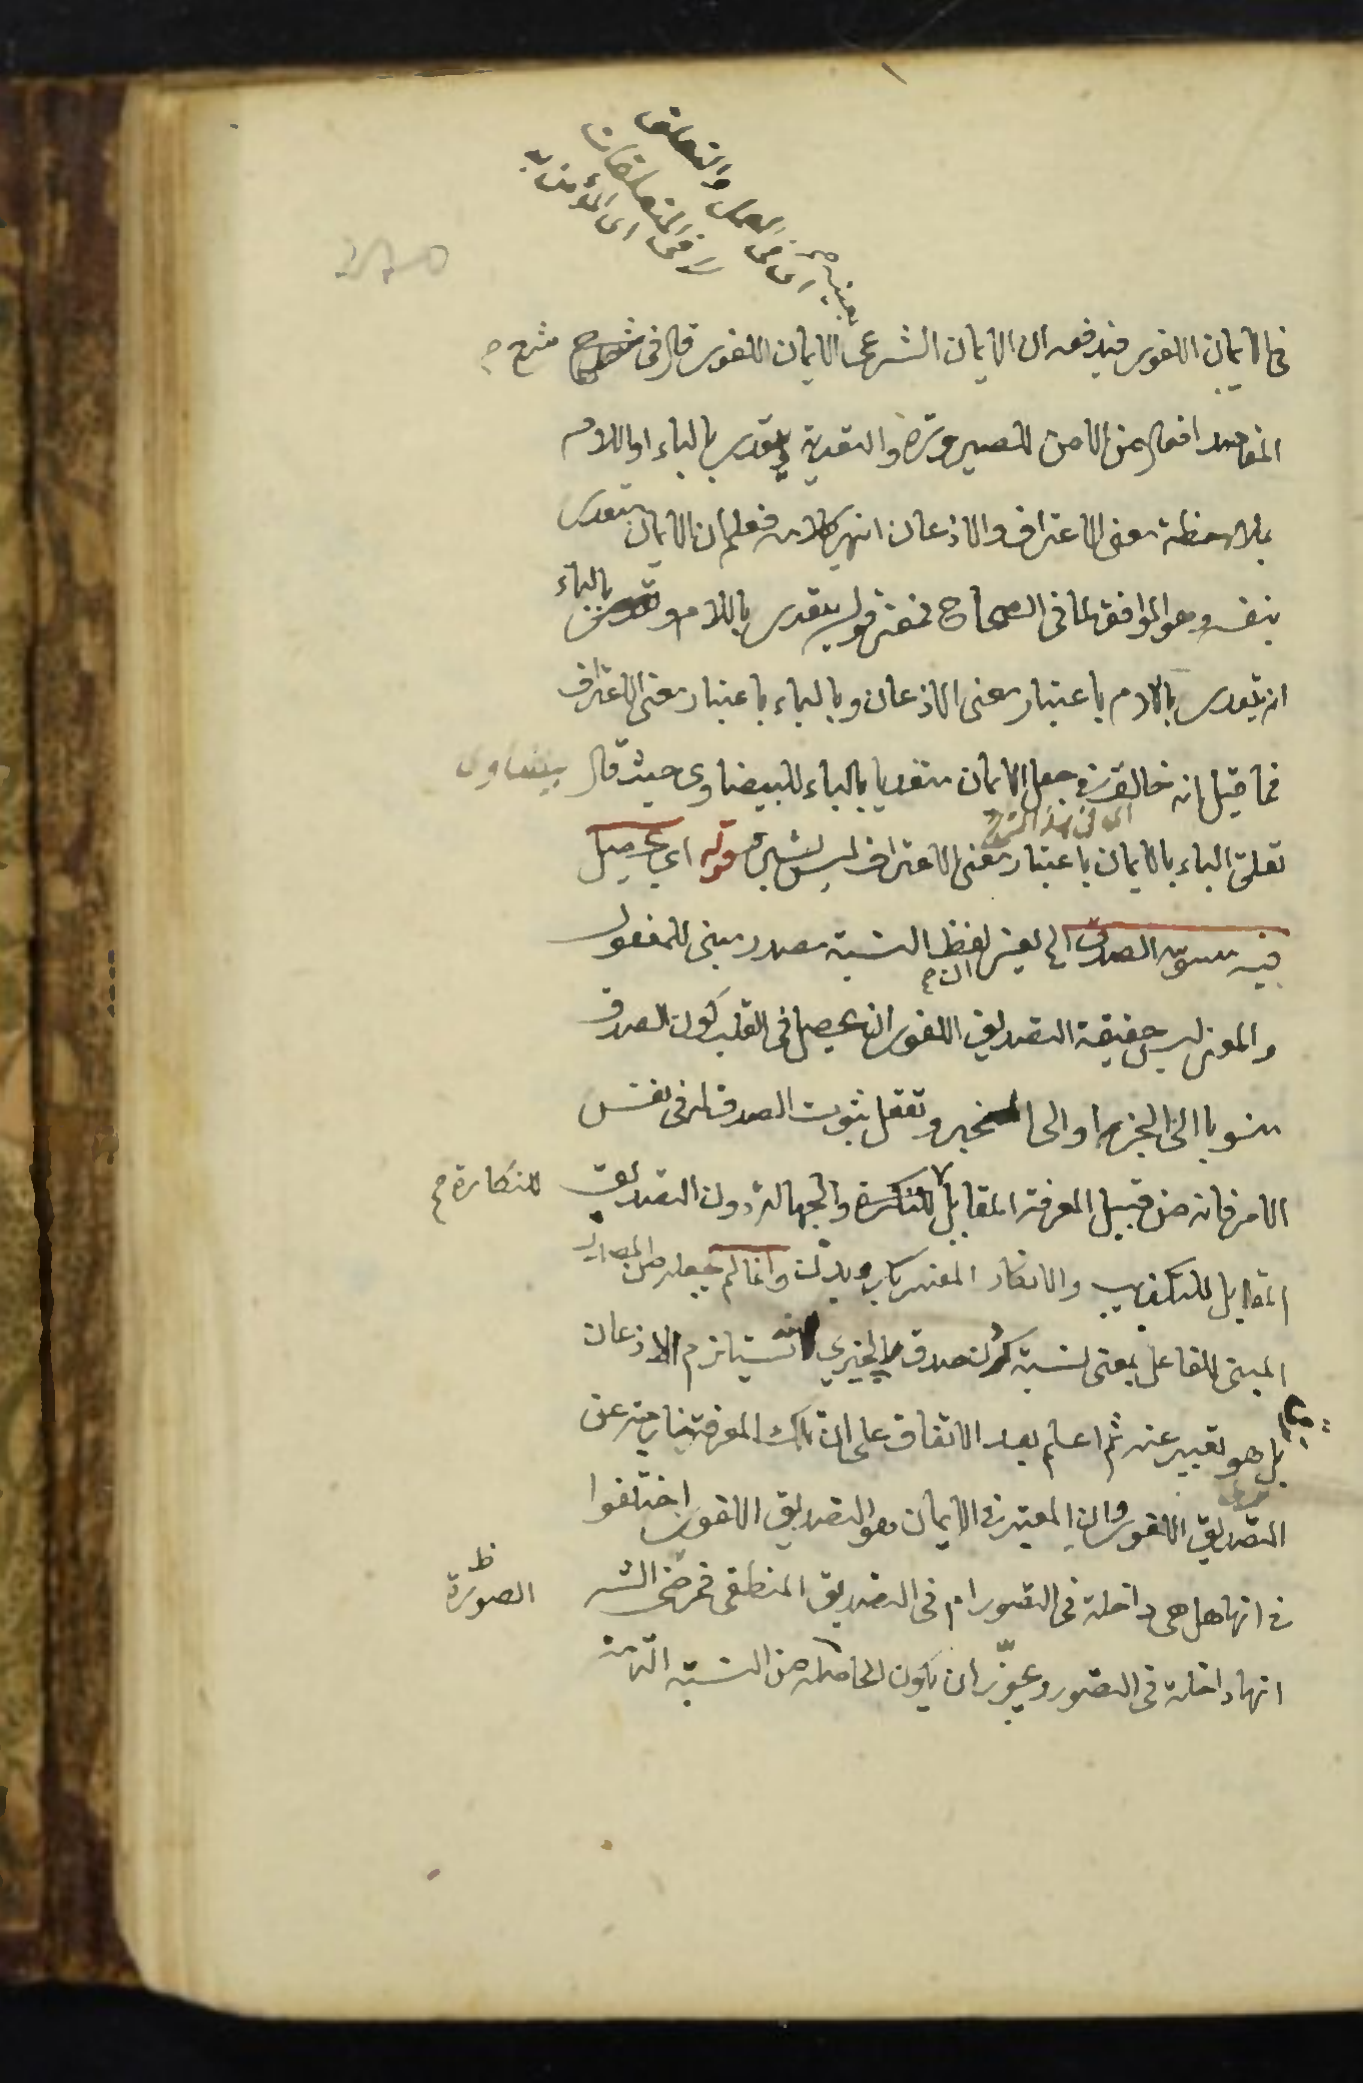 بعينه صح
اى فى العمل والتعلق
لا فى المتعلقات
اى المؤمن به
فى الايمان اللغوى فيدفعه ان الايمان الشرعى الايمان اللغوى قال فى شرح
شرح م
المقاصد افعال من الامن للصيرورة والتعدية ويتعدى بالباء او اللام
بملاحظة معنى الاعتراف والاذعان انتهى كلامه فعلم ان الايمان متعدى
بنفسه وهو الموافق لما فى الصحاح فمعنى قوله يتعدى باللام وبالباء
انه يتعدى باللام باعتبار معنى الاذعان وبالباء باعتبار معنى الاعتراف
فما قيل انه خالف فى جعل الايمان متعديا بالباء للبيضاوى حيث قال
بيضاوى
اى فى هذا الشرح
تعلق الباء بالايمان باعتبار معنى الاعتراف ليس بشىء قوله اى يحصل
فيه نسبة الصدق الخ يعنى لفظ النسبة مصدر مبنى للمفعول
ان م
والمعنى ليس حقيقة التصديق اللغوى ان يحصل فى القلب كون الصدق
منسوبا الى الخبر او الى المخبر وتعقل ثبوت الصدق له فى نفس
الامر فانه من قبيل المعرفة المقابل للنكرة والجهالة دون التصديق
للنكارة م
المقابل للتكذيب والانكار المعتبر وانما لم يجعله من المصدر
المبنى للفاعل بمعنى نسبة صدق الخبر لانه يستلزم الاذعان
بل هو تعبير عنه ثم اعلم بعد الاتفاق على ان تلك المعرفة خارجة عن
التصديق اللغوى وان المعتبر فى الايمان هو التصديق اللغوى اختلفوا
فى انها هل هى داخلة فى التصور ام فى التصديق المنطقى فمرضى الشـ
الصورة ظ
انها داخلة فى التصور ويجوز ان يكون الحاصلة من النسبة التامة